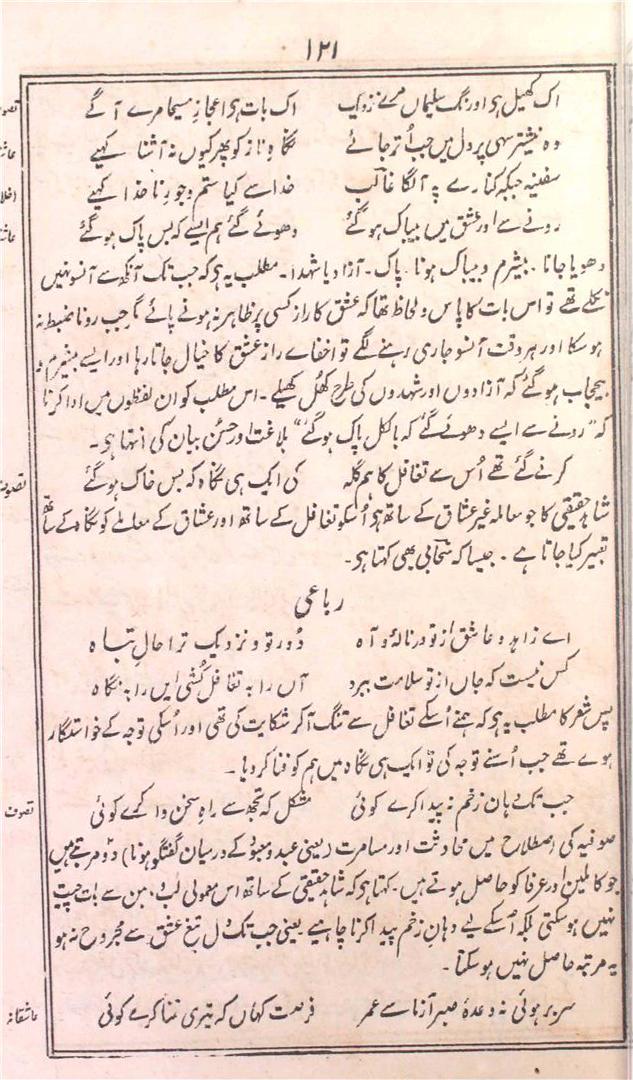 ۱۲۱
اک کھیل ہی اورنگ سلیماں مرے نزدیک اک بات ہی اعجازِ مسیحا مرے آگے
وہ نیشتر سہی پر دل میں جب اُتر جائے نگاہِ ناز کو پھر کیوں نہ آشنا کہیے
سفینہ جبکہ کنارے پہ آلگا غالب خدا سے کیا ستم وجورِ ناخدا کہیے
رونے سے اور عشق میں بیباک ہوگئے دھوئے گئے ہم ایسے کہ بس پاک ہوگئے
دھویا جانا۔ بیشرم و بیباک ہونا۔ پاک۔ آزاد یا شہدا۔ مطلب یہ ہی کہ جب تک آنکھ سے آنسو نہیں
نکلے تھے تو اس بات کا پاس و لحاظ تھا کہ عشق کا راز کسی پر ظاہر نہ ہونے پائے مگر جب رونا ضبط نہ
ہوسکا اور ہر وقت آنسو جاری رہنے لگے تو اخفاے رازِ عشق کا خیال جاتا رہا اور ایسے بیشرم و
بیحجاب ہوگئے کہ آزادوں اور شہدوں کی طرح کھُل کھیلے۔ اس مطلب کو ان لفظوں میں ادا کرنا
کہ ”رونے سے ایسے دھوئے گئے کہ بالکل پاک ہوگئے“ بلاغت اور حسنِ بیان کی انتہا ہی۔
کرنے گئے تھے اُس سے تغافل کا ہم گلہ کی ایک ہی نگاہ کہ بس خاک ہوگئے تصوف
شاہدِ حقیقی کا جو معاملہ غیر عشاق کے ساتھ ہی اُسکو تغافل کے ساتھ اور عشاق کے معاملے کو نگاہ کے ساتھ
تعبیر کیا جاتا ہے۔ جیسا کہ سحابی بھی کہتا ہی۔
رباعی
اے زاہد و عاشق از تو در نالہ و آہ دُور تو و نزدیک ترا حال تباہ
کس نیست کہ جاں از تو سلامت ببرد آں را بہ تغافل کُشی ایں را بہ نگاہ
پس شعر کا مطلب یہ ہی کہ ہمنے اُسکے تغافل سے تنگ آکر شکایت کی تھی اور اُسکی توجہ کے خواستگار
ہوے تھے جب اُسنے توجہ کی تو ایک ہی نگاہ میں ہم کو فنا کر دیا۔
جب تک دہانِ زخم نہ پیدا کرے کوئی مشکل کہ تجھ سے راہِ سخن وا کرے کوئی تصوف
صوفیہ کی اصطلاح میں محادثت اور مسامرت (یعنی عبد و معبود کے درمیان گفتگو ہونا) دو مرتبے ہیں
جو کاملین اور عرفا کو حاصل ہوتے ہیں۔ کہتا ہی کہ شاہدِ حقیقی کے ساتھ اس معمولی لب و دہن سے بات چیت
نہیں ہوسکتی بلکہ اُسکے لیے دہانِ زخم پیدا کرنا چاہیے یعنی جب تک دل تیغِ عشق سے مجروح نہ ہو
یہ مرتبہ حاصل نہیں ہوسکتا۔
سربر ہوئی نہ وعدۂ صبر آزما سے عمر فرصت کہاں کہ تیری تمنا کرے کوئی عاشقانہ